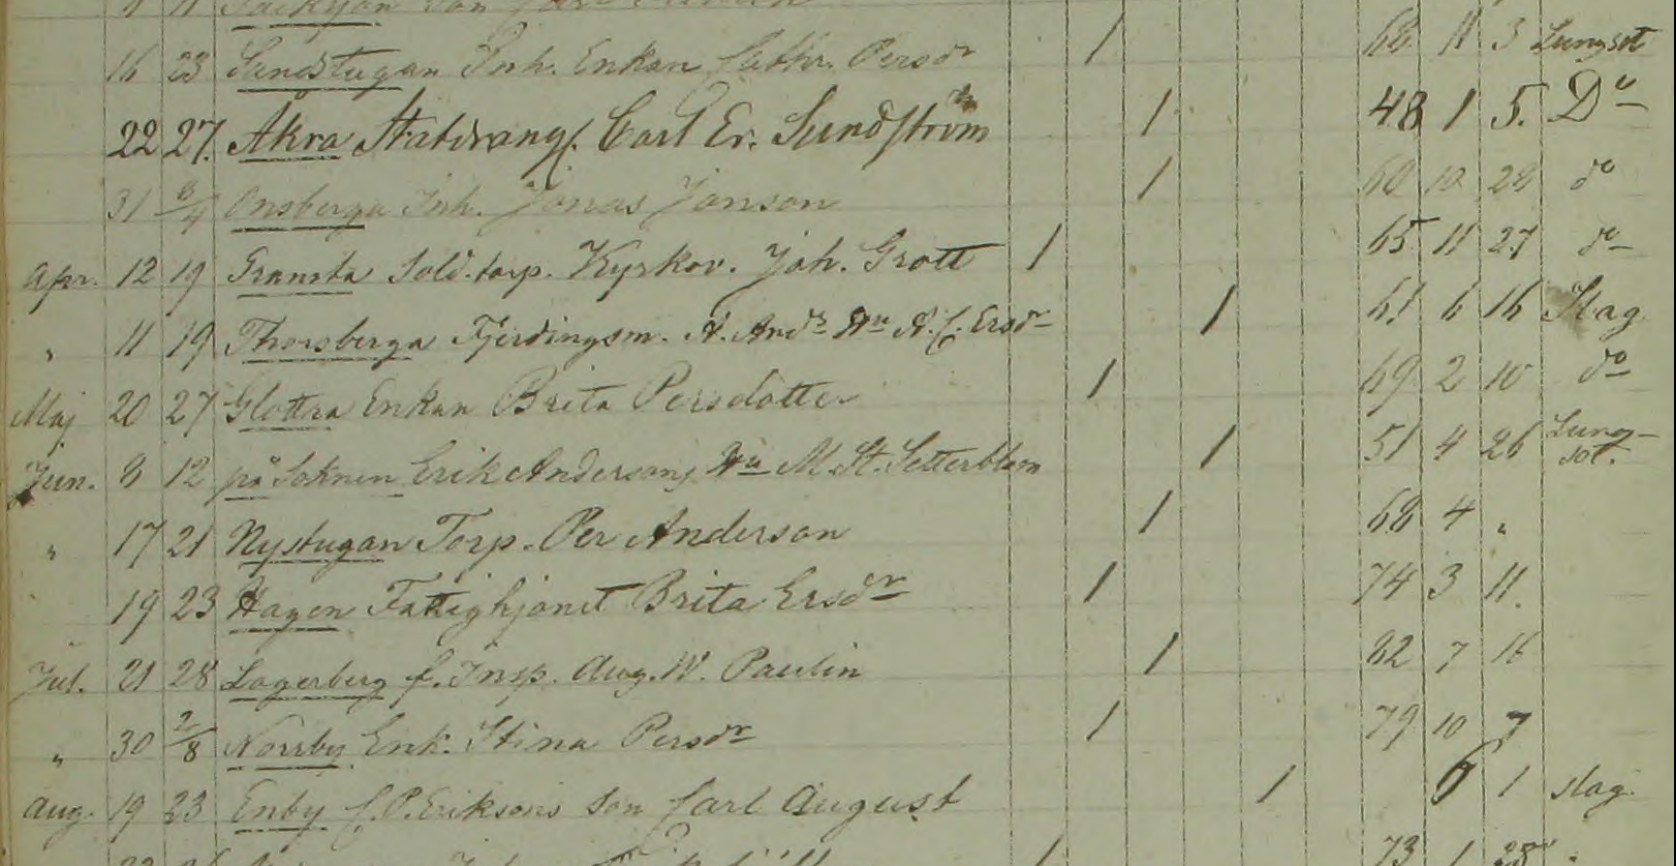 16 23 Sandstugan Inh. Enkan Cathr. Persdr / 68 11 3 Lungsot
22 27. Åkra Statdrang f. Carl Er. Sundström / 48 1 5. Do
31 8/4 Onsberga Inh. Jonas Janson / 60 10 28 do
Apr. 12 19 Gransta Sold.torp. Kyrkov. Joh. Grott / 65 11 27 do
" 11 19 Thorsberga Fjerdingsm. A. Ands Hu A. C. Ersdr / 61 6 16 Slag
Maj 20 27 Glottra Enkan Brita Persdotter / 69 2 10 do
Jun. 8 12 på Soknen Erik Andersons Hu M. St. Setterblom / 51 4 26 Lungsot.
" 17 21 Nystugan Torp. Per Anderson / 68 4 "
19 23 Hagen Fattighjonet Brita Ersdr / 74 3 11.
Jul. 21 28 Lagerberg f. Insp. Aug. W. Paulin / 82 7 16
" 30 2/8 Norrby Enk. Stina Persdr / 79 10 7
Aug. 19 23 Enby C. P. Eriksons Son Carl August / 1 slag.
73 1